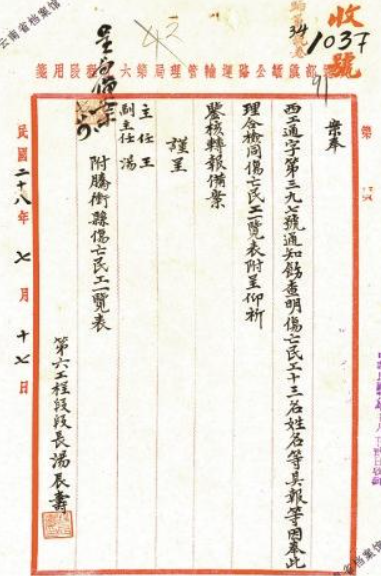 收號
1037
34
91
43
部滇緬公路運輸管理局第六工程段用箋
第 頁
案奉
西工通字第三九七號通知飭查明傷亡民工十三名姓名等具報等因奉此
理合檢同傷亡民工一覽表附呈仰祈
鑒核轉報備案
謹呈
主任王
副主任湯
附騰衝縣傷亡民工一覽表
第六工程段段長湯辰壽
民國二十八年七月十七日
云南省档案馆
省档案馆